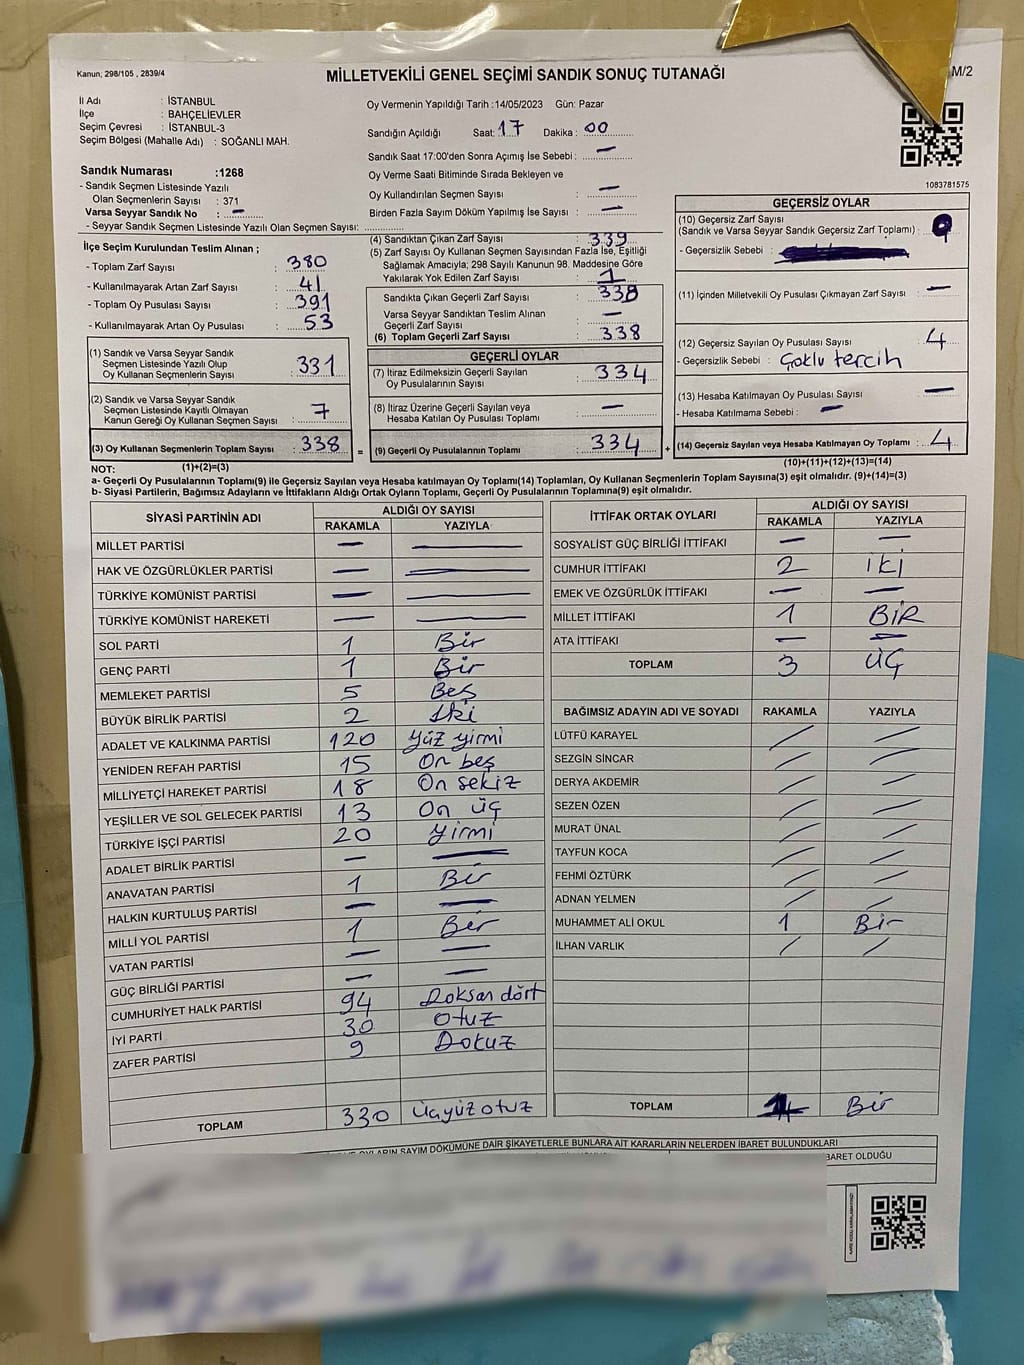 Kanun; 298/105 , 2839/4
MİLLETVEKİLİ GENEL SEÇİMİ SANDIK SONUÇ TUTANAĞI
M/2
İl Adı : İSTANBUL
İlçe : BAHÇELİEVLER
Seçim Çevresi : İSTANBUL-3
Seçim Bölgesi (Mahalle Adı) : SOĞANLI MAH.
Sandık Numarası :1268
- Sandık Seçmen Listesinde Yazılı
Olan Seçmenlerin Sayısı : 371
Varsa Seyyar Sandık No : —
- Seyyar Sandık Seçmen Listesinde Yazılı Olan Seçmen Sayısı:
Oy Vermenin Yapıldığı Tarih :14/05/2023 Gün: Pazar
Sandığın Açıldığı Saat: 17 Dakika : 00
Sandık Saat 17:00'den Sonra Açımış İse Sebebi : —
Oy Verme Saati Bitiminde Sırada Bekleyen ve
Oy Kullandırılan Seçmen Sayısı : —
Birden Fazla Sayım Döküm Yapılmış İse Sayısı : —
1083781575
İlçe Seçim Kurulundan Teslim Alınan ;
- Toplam Zarf Sayısı : 380
- Kullanılmayarak Artan Zarf Sayısı : 41
- Toplam Oy Pusulası Sayısı : 391
- Kullanılmayarak Artan Oy Pusulası : 53
(1) Sandık ve Varsa Seyyar Sandık
Seçmen Listesinde Yazılı Olup
Oy Kullanan Seçmenlerin Sayısı : 331
(2) Sandık ve Varsa Seyyar Sandık
Seçmen Listesinde Kayıtlı Olmayan
Kanun Gereği Oy Kullanan Seçmen Sayısı : 7
(3) Oy Kullanan Seçmenlerin Toplam Sayısı : 338 =
(1)+(2)=(3)
(4) Sandıktan Çıkan Zarf Sayısı : 339
(5) Zarf Sayısı Oy Kullanan Seçmen Sayısından Fazla İse, Eşitliği
Sağlamak Amacıyla; 298 Sayılı Kanunun 98. Maddesine Göre
Yakılarak Yok Edilen Zarf Sayısı : 1
Sandıkta Çıkan Geçerli Zarf Sayısı : 338
Varsa Seyyar Sandıktan Teslim Alınan
Geçerli Zarf Sayısı : —
(6) Toplam Geçerli Zarf Sayısı : 338
GEÇERLİ OYLAR
(7) İtiraz Edilmeksizin Geçerli Sayılan
Oy Pusulalarının Sayısı : 334
(8) İtiraz Üzerine Geçerli Sayılan veya
Hesaba Katılan Oy Pusulası Toplamı : —
(9) Geçerli Oy Pusulalarının Toplamı : 334 +
GEÇERSİZ OYLAR
(10) Geçersiz Zarf Sayısı
(Sandık ve Varsa Seyyar Sandık Geçersiz Zarf Toplamı) :
- Geçersizlik Sebebi :
(11) İçinden Milletvekili Oy Pusulası Çıkmayan Zarf Sayısı : —
(12) Geçersiz Sayılan Oy Pusulası Sayısı : 4
- Geçersizlik Sebebi : Çoklu tercih
(13) Hesaba Katılmayan Oy Pusulası Sayısı : —
- Hesaba Katılmama Sebebi : —
(14) Geçersiz Sayılan veya Hesaba Katılmayan Oy Toplamı : 4
(10)+(11)+(12)+(13)=(14)
NOT:
a- Geçerli Oy Pusulalarının Toplamı(9) ile Geçersiz Sayılan veya Hesaba katılmayan Oy Toplamı(14) Toplamları, Oy Kullanan Seçmenlerin Toplam Sayısına(3) eşit olmalıdır. (9)+(14)=(3)
b- Siyasi Partilerin, Bağımsız Adayların ve İttifakların Aldığı Ortak Oyların Toplamı, Geçerli Oy Pusulalarının Toplamına(9) eşit olmalıdır.
SİYASİ PARTİNİN ADI
ALDIĞI OY SAYISI
RAKAMLA YAZIYLA
MİLLET PARTİSİ — —
HAK VE ÖZGÜRLÜKLER PARTİSİ — —
TÜRKİYE KOMÜNİST PARTİSİ — —
TÜRKİYE KOMÜNİST HAREKETİ — —
SOL PARTİ 1 Bir
GENÇ PARTİ 1 Bir
MEMLEKET PARTİSİ 5 Beş
BÜYÜK BİRLİK PARTİSİ 2 İki
ADALET VE KALKINMA PARTİSİ 120 Yüz yirmi
YENİDEN REFAH PARTİSİ 15 On beş
MİLLİYETÇİ HAREKET PARTİSİ 18 On sekiz
YEŞİLLER VE SOL GELECEK PARTİSİ 13 On üç
TÜRKİYE İŞÇİ PARTİSİ 20 Yirmi
ADALET BİRLİK PARTİSİ — —
ANAVATAN PARTİSİ 1 Bir
HALKIN KURTULUŞ PARTİSİ — —
MİLLİ YOL PARTİSİ 1 Bir
VATAN PARTİSİ — —
GÜÇ BİRLİĞİ PARTİSİ — —
CUMHURİYET HALK PARTİSİ 94 Doksan dört
İYİ PARTİ 30 Otuz
ZAFER PARTİSİ 9 Dokuz
TOPLAM 330 Üçyüz otuz
İTTİFAK ORTAK OYLARI
ALDIĞI OY SAYISI
RAKAMLA YAZIYLA
SOSYALİST GÜÇ BİRLİĞİ İTTİFAKI — —
CUMHUR İTTİFAKI 2 iki
EMEK VE ÖZGÜRLÜK İTTİFAKI — —
MİLLET İTTİFAKI 1 BİR
ATA İTTİFAKI — —
TOPLAM 3 ÜÇ
BAĞIMSIZ ADAYIN ADI VE SOYADI RAKAMLA YAZIYLA
LÜTFÜ KARAYEL / /
SEZGİN SİNCAR / /
DERYA AKDEMİR / /
SEZEN ÖZEN / /
MURAT ÜNAL / /
TAYFUN KOCA / /
FEHMİ ÖZTÜRK / /
ADNAN YELMEN / /
MUHAMMET ALİ OKUL 1 Bir
İLHAN VARLIK / /
TOPLAM 1 Bir
OYLARIN SAYIM DÖKÜMÜNE DAİR ŞİKAYETLERLE BUNLARA AİT KARARLARIN NELERDEN İBARET BULUNDUKLARI
BARET OLDUĞU